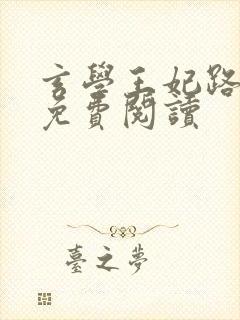 玄學王妃路
免費閱讀
臺之夢